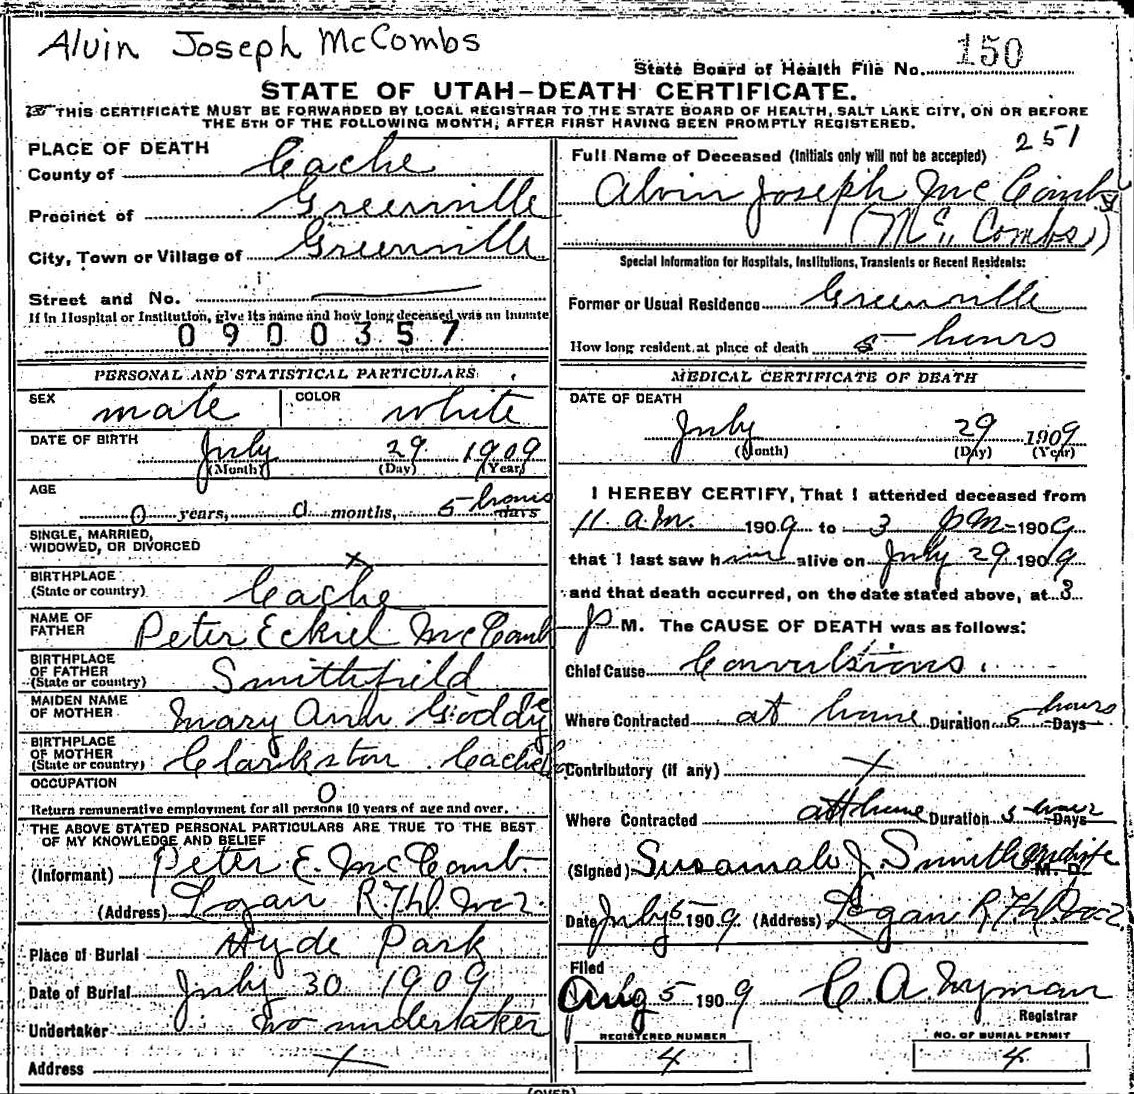 Alvin Joseph McCombs
150
State Board of Health File No.
STATE OF UTAH-DEATH CERTIFICATE.
THIS CERTIFICATE MUST BE FORWARDED BY LOCAL REGISTRAR TO THE STATE BOARD OF HEALTH, SALT LAKE CITY, ON OR BEFORE
THE 5TH OF THE FOLLOWING MONTH, AFTER FIRST HAVING BEEN PROMPTLY REGISTERED.
PLACE OF DEATH
County of Cache
Precinct of Greenville
City, Town or Village of Greenville
Street and No.
If in Hospital or Institution, give its name and how long deceased was an inmate
0900357
PERSONAL AND STATISTICAL PARTICULARS
SEX male COLOR white
DATE OF BIRTH July 29 1909
(Month) (Day) (Year)
AGE
0 years, 0 months, 5 hours days
SINGLE, MARRIED,
WIDOWED, OR DIVORCED x
BIRTHPLACE
(State or country) Cache
NAME OF
FATHER Peter Eckiel McComb
BIRTHPLACE
OF FATHER
(State or country) Smithfield
MAIDEN NAME
OF MOTHER Mary Ann
BIRTHPLACE
OF MOTHER
(State or country) Clarkston Cache
OCCUPATION 0
Return remunerative employment for all persons 10 years of age and over.
THE ABOVE STATED PERSONAL PARTICULARS ARE TRUE TO THE BEST
OF MY KNOWLEDGE AND BELIEF
(Informant) Peter E. McComb.
(Address) Logan
Place of Burial Hyde Park
Date of Burial July 30 1909
Undertaker no undertaker
Address x
251
Full Name of Deceased (Initials only will not be accepted)
Alvin Joseph McCombs
(McCombs)
Special Information for Hospitals, Institutions, Transients or Recent Residents:
Former or Usual Residence Greenville
How long resident at place of death 5 hours
MEDICAL CERTIFICATE OF DEATH
DATE OF DEATH
July 29 1909
(Month) (Day) (Year)
I HEREBY CERTIFY, That I attended deceased from
11 a.m. 1909 to 3 PM 1909
that I last saw him alive on July 29 1909
and that death occurred, on the date stated above, at 3
P M. The CAUSE OF DEATH was as follows:
Chief Cause Convulsions.
Where Contracted at home Duration 5 hours Days
Contributory (if any) x
Where Contracted at home Duration 5 hour Days
(Signed) Susannah J. Smith Midwife M. D.
Date July 5 1909 (Address) Logan
Filed
Aug 5 1909 C A Wyman
Registrar
REGISTERED NUMBER
4
NO. OF BURIAL PERMIT
4
(OVER)